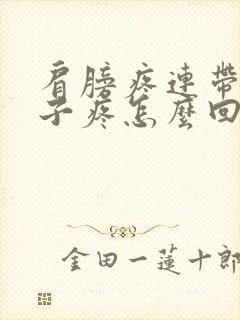 肩膀疼連帶
子疼怎麼回
金田一蓮十郎